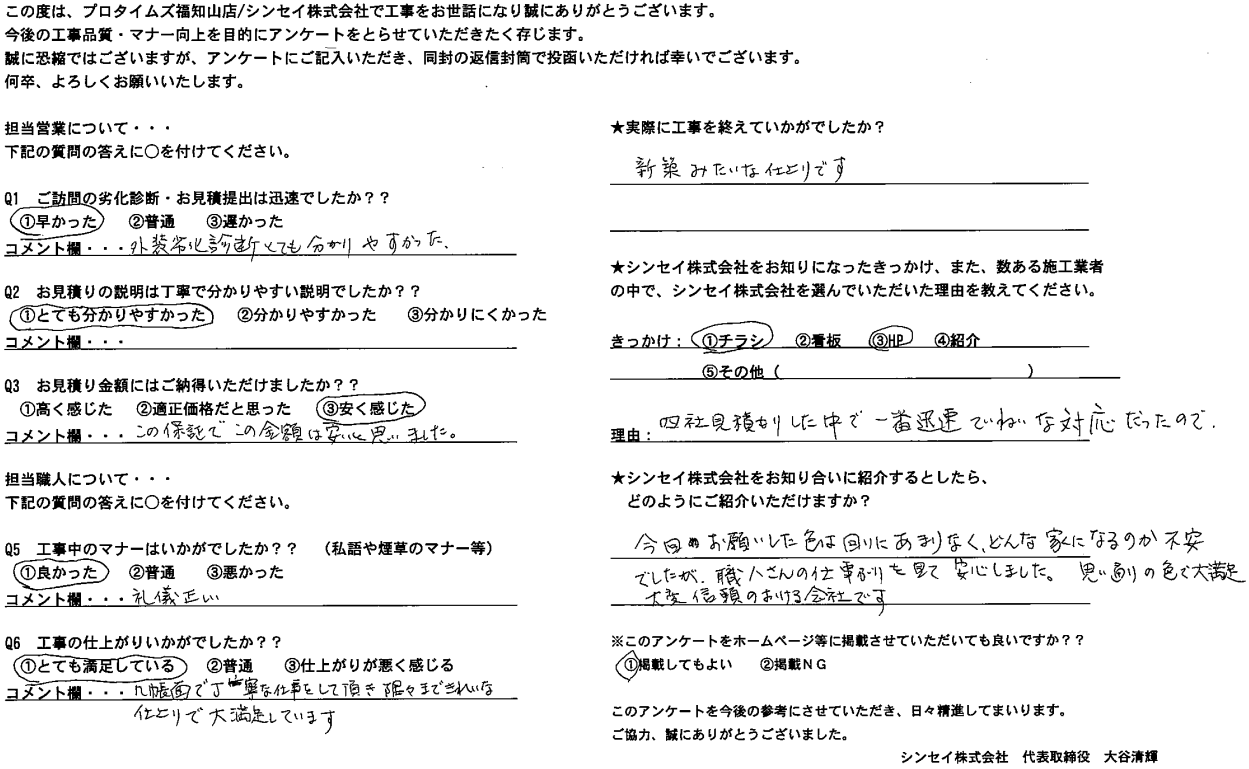 この度は、プロタイムズ福知山店/シンセイ株式会社で工事をお世話になり誠にありがとうございます。
今後の工事品質・マナー向上を目的にアンケートをとらせていただきたく存じます。
誠に恐縮ではございますが、アンケートにご記入いただき、同封の返信封筒で投函いただければ幸いでございます。
何卒、よろしくお願いいたします。
担当営業について・・・
下記の質問の答えに○を付けてください。
Q1 ご訪問の劣化診断・お見積提出は迅速でしたか？？
①早かった ②普通 ③遅かった
コメント欄・・・外装劣化診断とても分かりやすかった、
Q2 お見積りの説明は丁寧で分かりやすい説明でしたか？？
①とても分かりやすかった ②分かりやすかった ③分かりにくかった
コメント欄・・・
Q3 お見積り金額にはご納得いただけましたか？？
①高く感じた ②適正価格だと思った ③安く感じた
コメント欄・・・この保証でこの金額は安いと思いました。
担当職人について・・・
下記の質問の答えに○を付けてください。
Q5 工事中のマナーはいかがでしたか？？ （私語や煙草のマナー等）
①良かった ②普通 ③悪かった
コメント欄・・・礼儀正い
Q6 工事の仕上がりいかがでしたか？？
①とても満足している ②普通 ③仕上がりが悪く感じる
コメント欄・・・几帳面で丁寧な仕事をして頂き隅々まできれいな
仕上りで大満足しています
★実際に工事を終えていかがでしたか？
新築みたいな仕上りです
★シンセイ株式会社をお知りになったきっかけ、また、数ある施工業者
の中で、シンセイ株式会社を選んでいただいた理由を教えてください。
きっかけ：①チラシ ②看板 ③HP ④紹介
⑤その他（ ）
理由：四社見積もりした中で一番迅速でいねいな対応だったので.
★シンセイ株式会社をお知り合いに紹介するとしたら、
どのようにご紹介いただけますか？
今回お願いした色は回りにあまりなく、どんな家になるのか不安
でしたが、職人さんの仕事ぶりを見て安心しました。 思い通りの色で大満足
大変信頼のおける会社です
※このアンケートをホームページ等に掲載させていただいても良いですか？？
①掲載してもよい ②掲載ＮＧ
このアンケートを今後の参考にさせていただき、日々精進してまいります。
ご協力、誠にありがとうございました。
シンセイ株式会社 代表取締役 大谷清輝